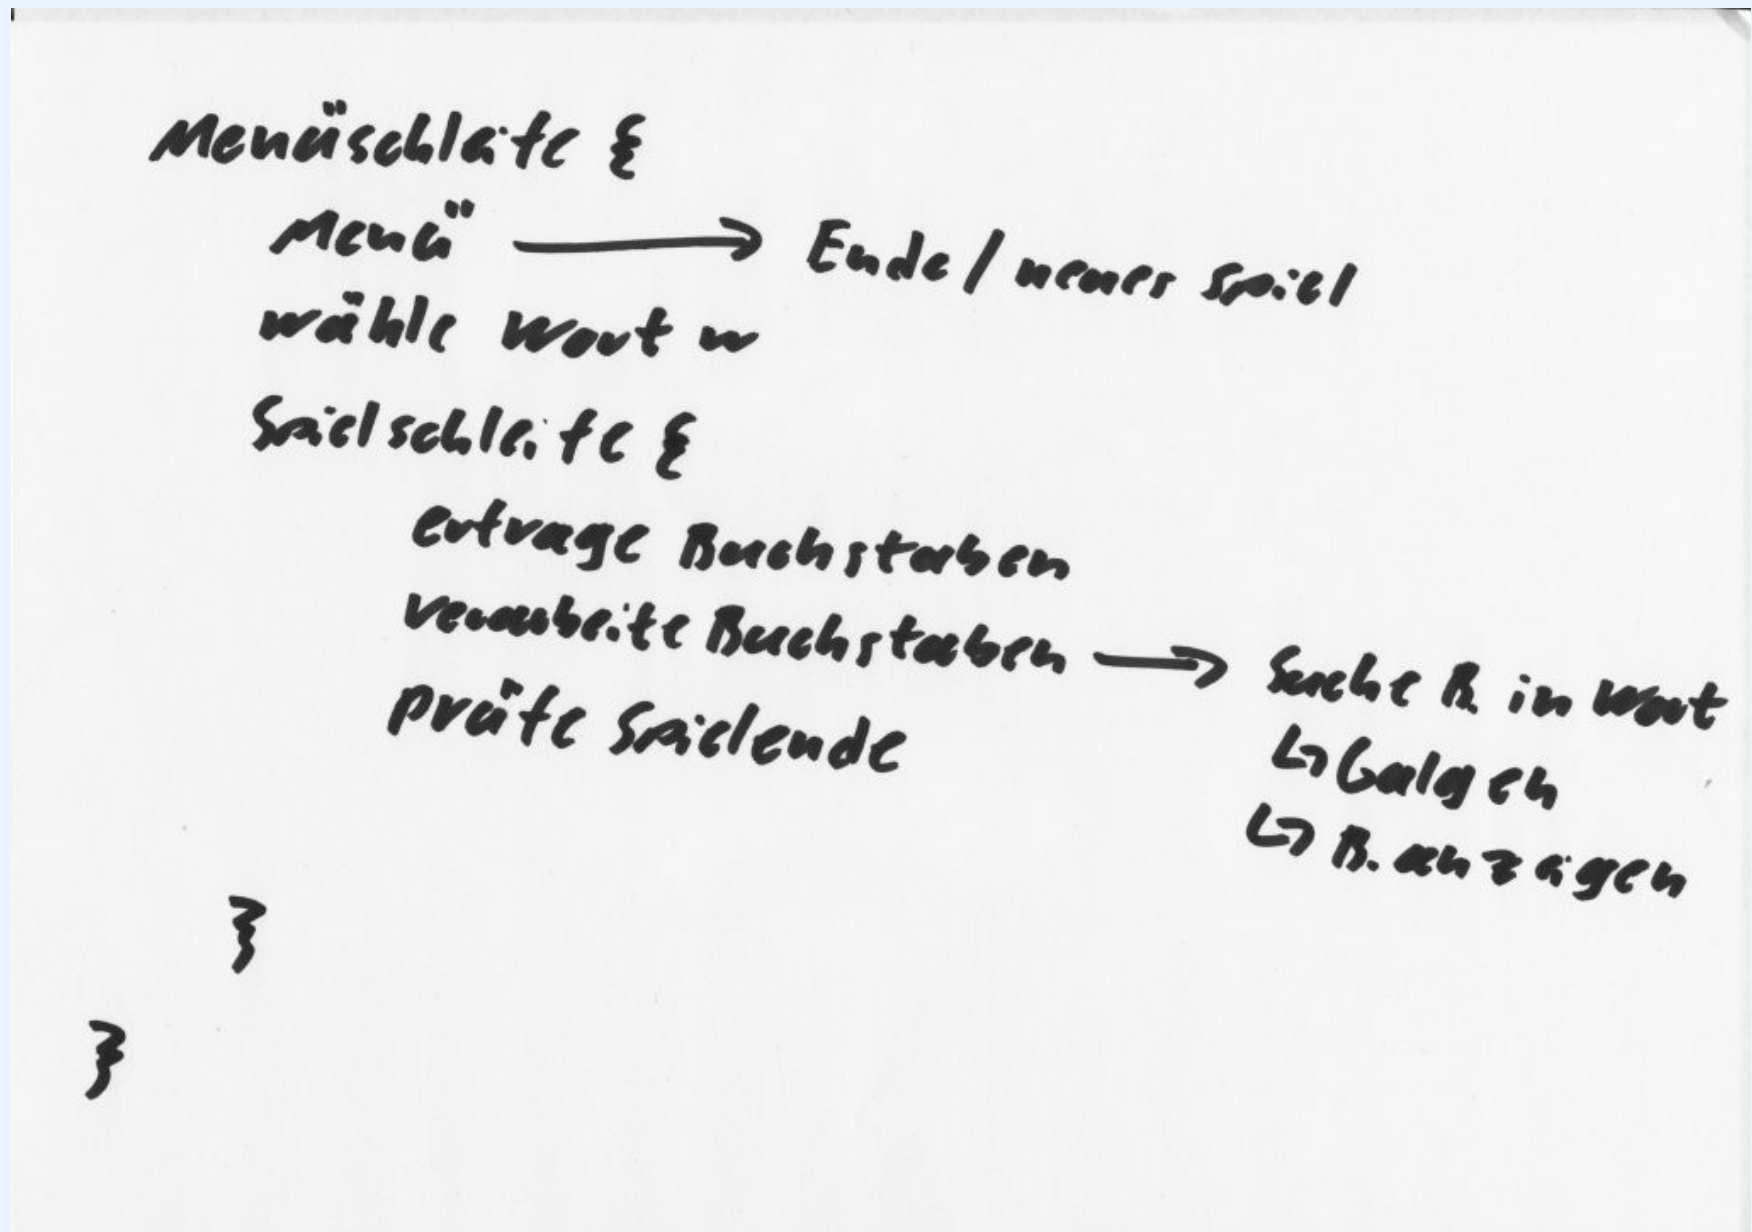 Menüschleife {
Menü → Ende / neues Spiel
wähle Wort w
Spielschleife {
erfrage Buchstaben
verarbeite Buchstaben → Suche B. in Wort
↳ Galgen
↳ B. anzeigen
prüfe Spielende
}
}